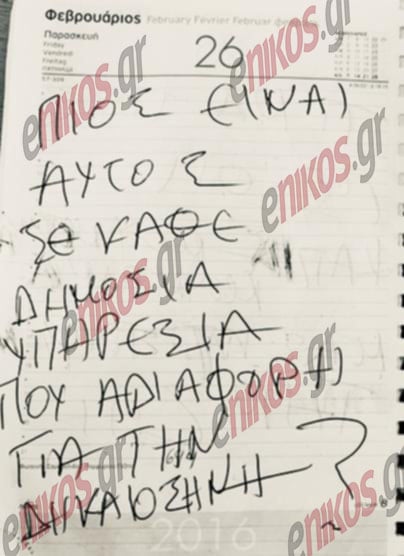 Φεβρουάριος February Février Februar
Παρασκευή 26
Friday
Vendredi
Freitag
ΠΙΟΣ ΕΙΝΑΙ
ΑΥΤΟΣ
ΣΕ ΚΑΘΕ
ΔΗΜΟΣΙΑ
ΥΠΗΡΕΣΙΑ
ΠΟΥ ΑΔΙΑΦΟΡΗ
ΓΙΑ ΤΗΝ
ΔΙΚΑΙΟΣΗΝΗ ?
2016
enikos.gr
enikos.gr
enikos.gr
enikos.gr
enikos.gr
enikos.gr
enikos.gr